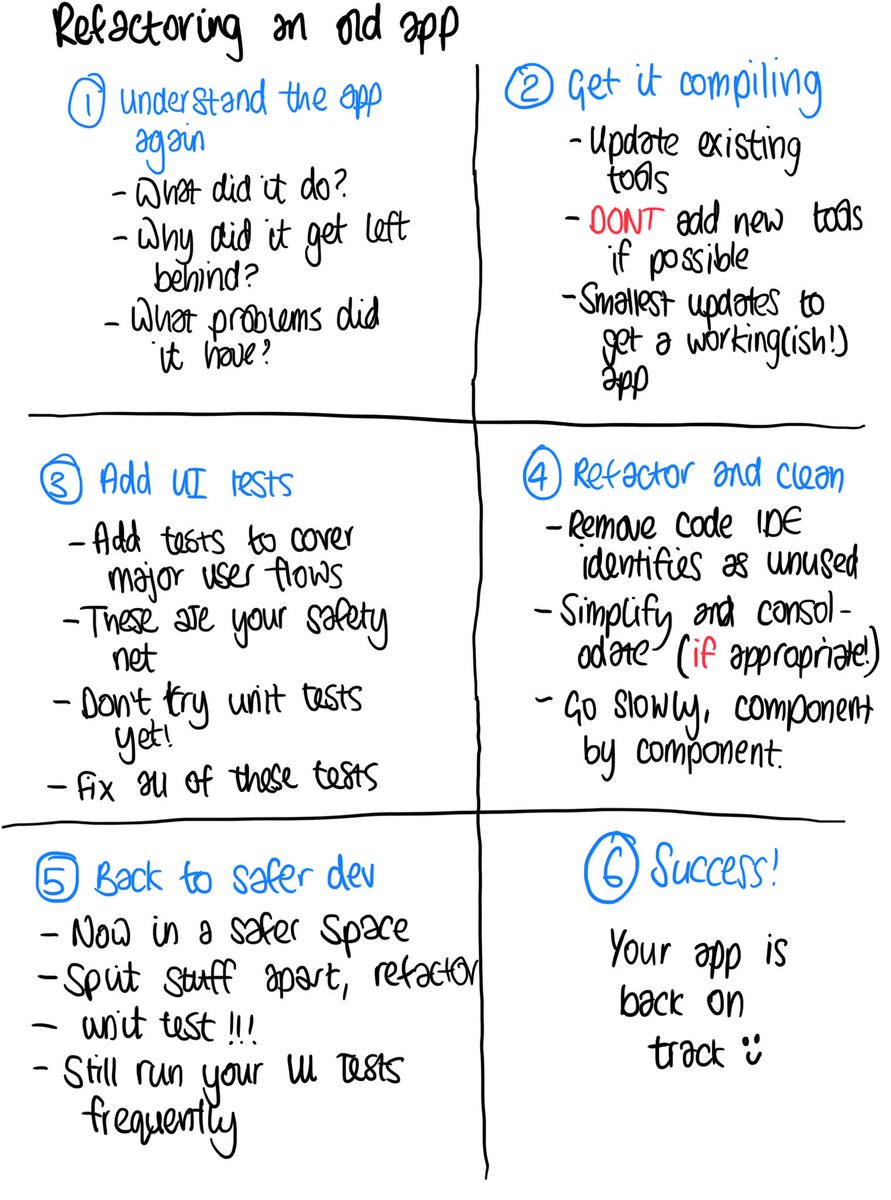 Refactoring an old app
1 Understand the app
again
- What did it do?
- Why did it get left
behind?
- What problems did
it have?
2 Get it compiling
- Update existing
tools
- DONT add new tools
if possible
- Smallest updates to
get a working(ish!)
app
3 Add UI tests
- Add tests to cover
major user flows
- These are your safety
net
- Don't try unit tests
yet!
- Fix all of these tests
4 Refactor and clean
- Remove code IDE
identifies as unused
- Simplify and consol-
odate (if appropriate!)
- Go slowly, component
by component.
5 Back to safer dev
- Now in a safer space
- Split stuff apart, refactor
- unit test!!!
- Still run your UI tests
frequently
6 Success!
Your app is
back on
track :)